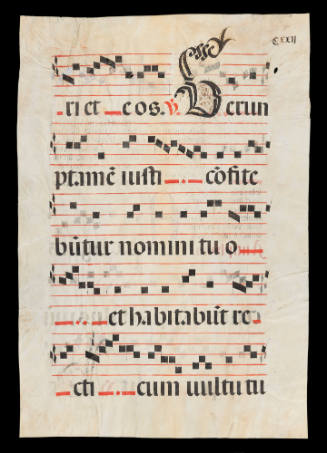 CXXII
ri et eos. ℣. Uerun
ptamē iusti cōfite
būtur nomini tu o
et habitabūt re
cti cum uultu tu